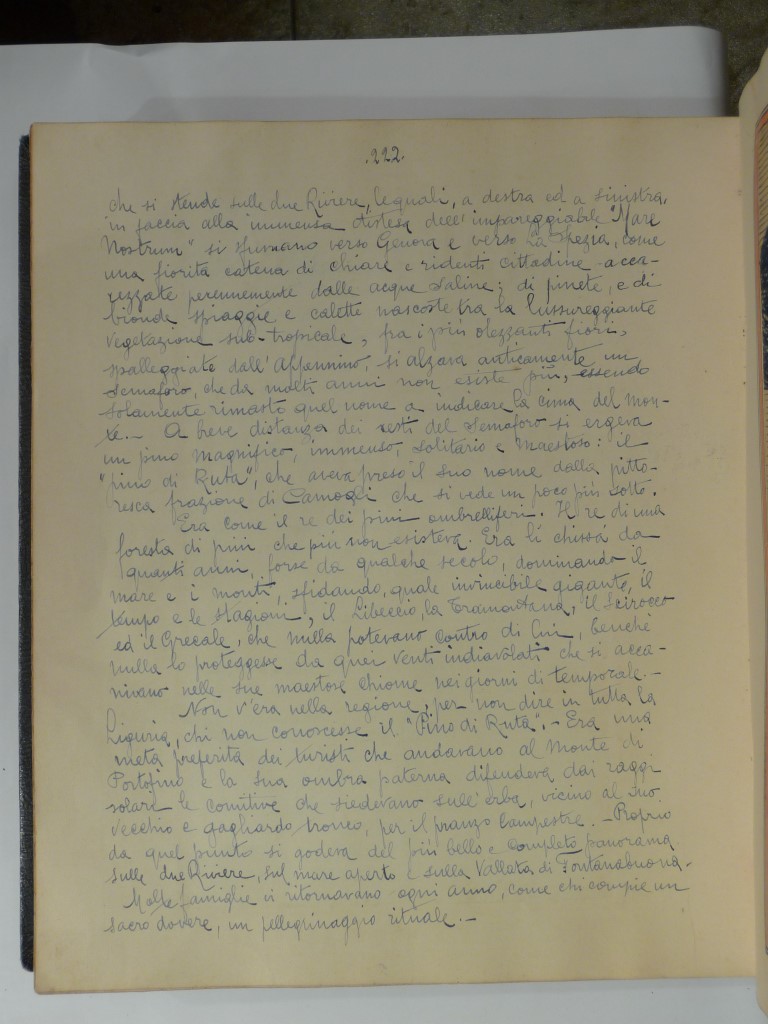 .222.
che si stende sulle due Riviere, le quali, a destra ed a sinistra,
in faccia alla immensa distesa dell'impareggiabile "Mare
Nostrum" si sfumano verso Genova e verso La Spezia, come
una fiorita catena di chiare e ridenti cittadine acca-
rezzate perennemente dalle acque saline; di pinete, e di
bionde spiaggie e calette nascoste tra la lussureggiante
vegetazione sub-tropicale, fra i più olezzanti fiori,
spalleggiate dall'Appennino, si alzava anticamente un
semaforo, che da molti anni non esiste più, essendo
solamente rimasto quel nome a indicare la cima del mon-
te.- A breve distanza dei resti del Semaforo si ergeva
un pino magnifico, immenso, solitario e maestoso: il
"pino di Ruta", che aveva preso il suo nome dalla pitto-
resca frazione di Camogli che si vede un poco più sotto.
Era come il re dei pini ombrelliferi. Il re di una
foresta di pini che più non esisteva. Era lì chissà da
quanti anni, forse da qualche secolo, dominando il
mare e i monti, sfidando, quale invincibile gigante, il
tempo e le stagioni, il Libeccio, la Tramontana, il Scirocco
ed il Grecale, che nulla potevano contro di Lui, benchè
nulla lo proteggesse da quei venti indiavolati che si acca-
nivano nelle sue maestose chiome nei giorni di temporale.-
Non v'era nella regione, per non dire in tutta la
Liguria, chi non conoscesse il "Pino di Ruta".- Era una
meta preferita dei turisti che andavano al Monte di
Portofino e la sua ombra paterna difendeva dai raggi
solari le comitive che siedevano sull'erba, vicino al suo
vecchio e gagliardo tronco, per il pranzo campestre.-Proprio
da quel punto si godeva del più bello e completo panorama
sulle due Riviere, sul mare aperto e sulla Vallata di Fontanabuona.
Molte famiglie vi ritornavano ogni anno, come chi compie un
sacro dovere, un pellegrinaggio rituale.-